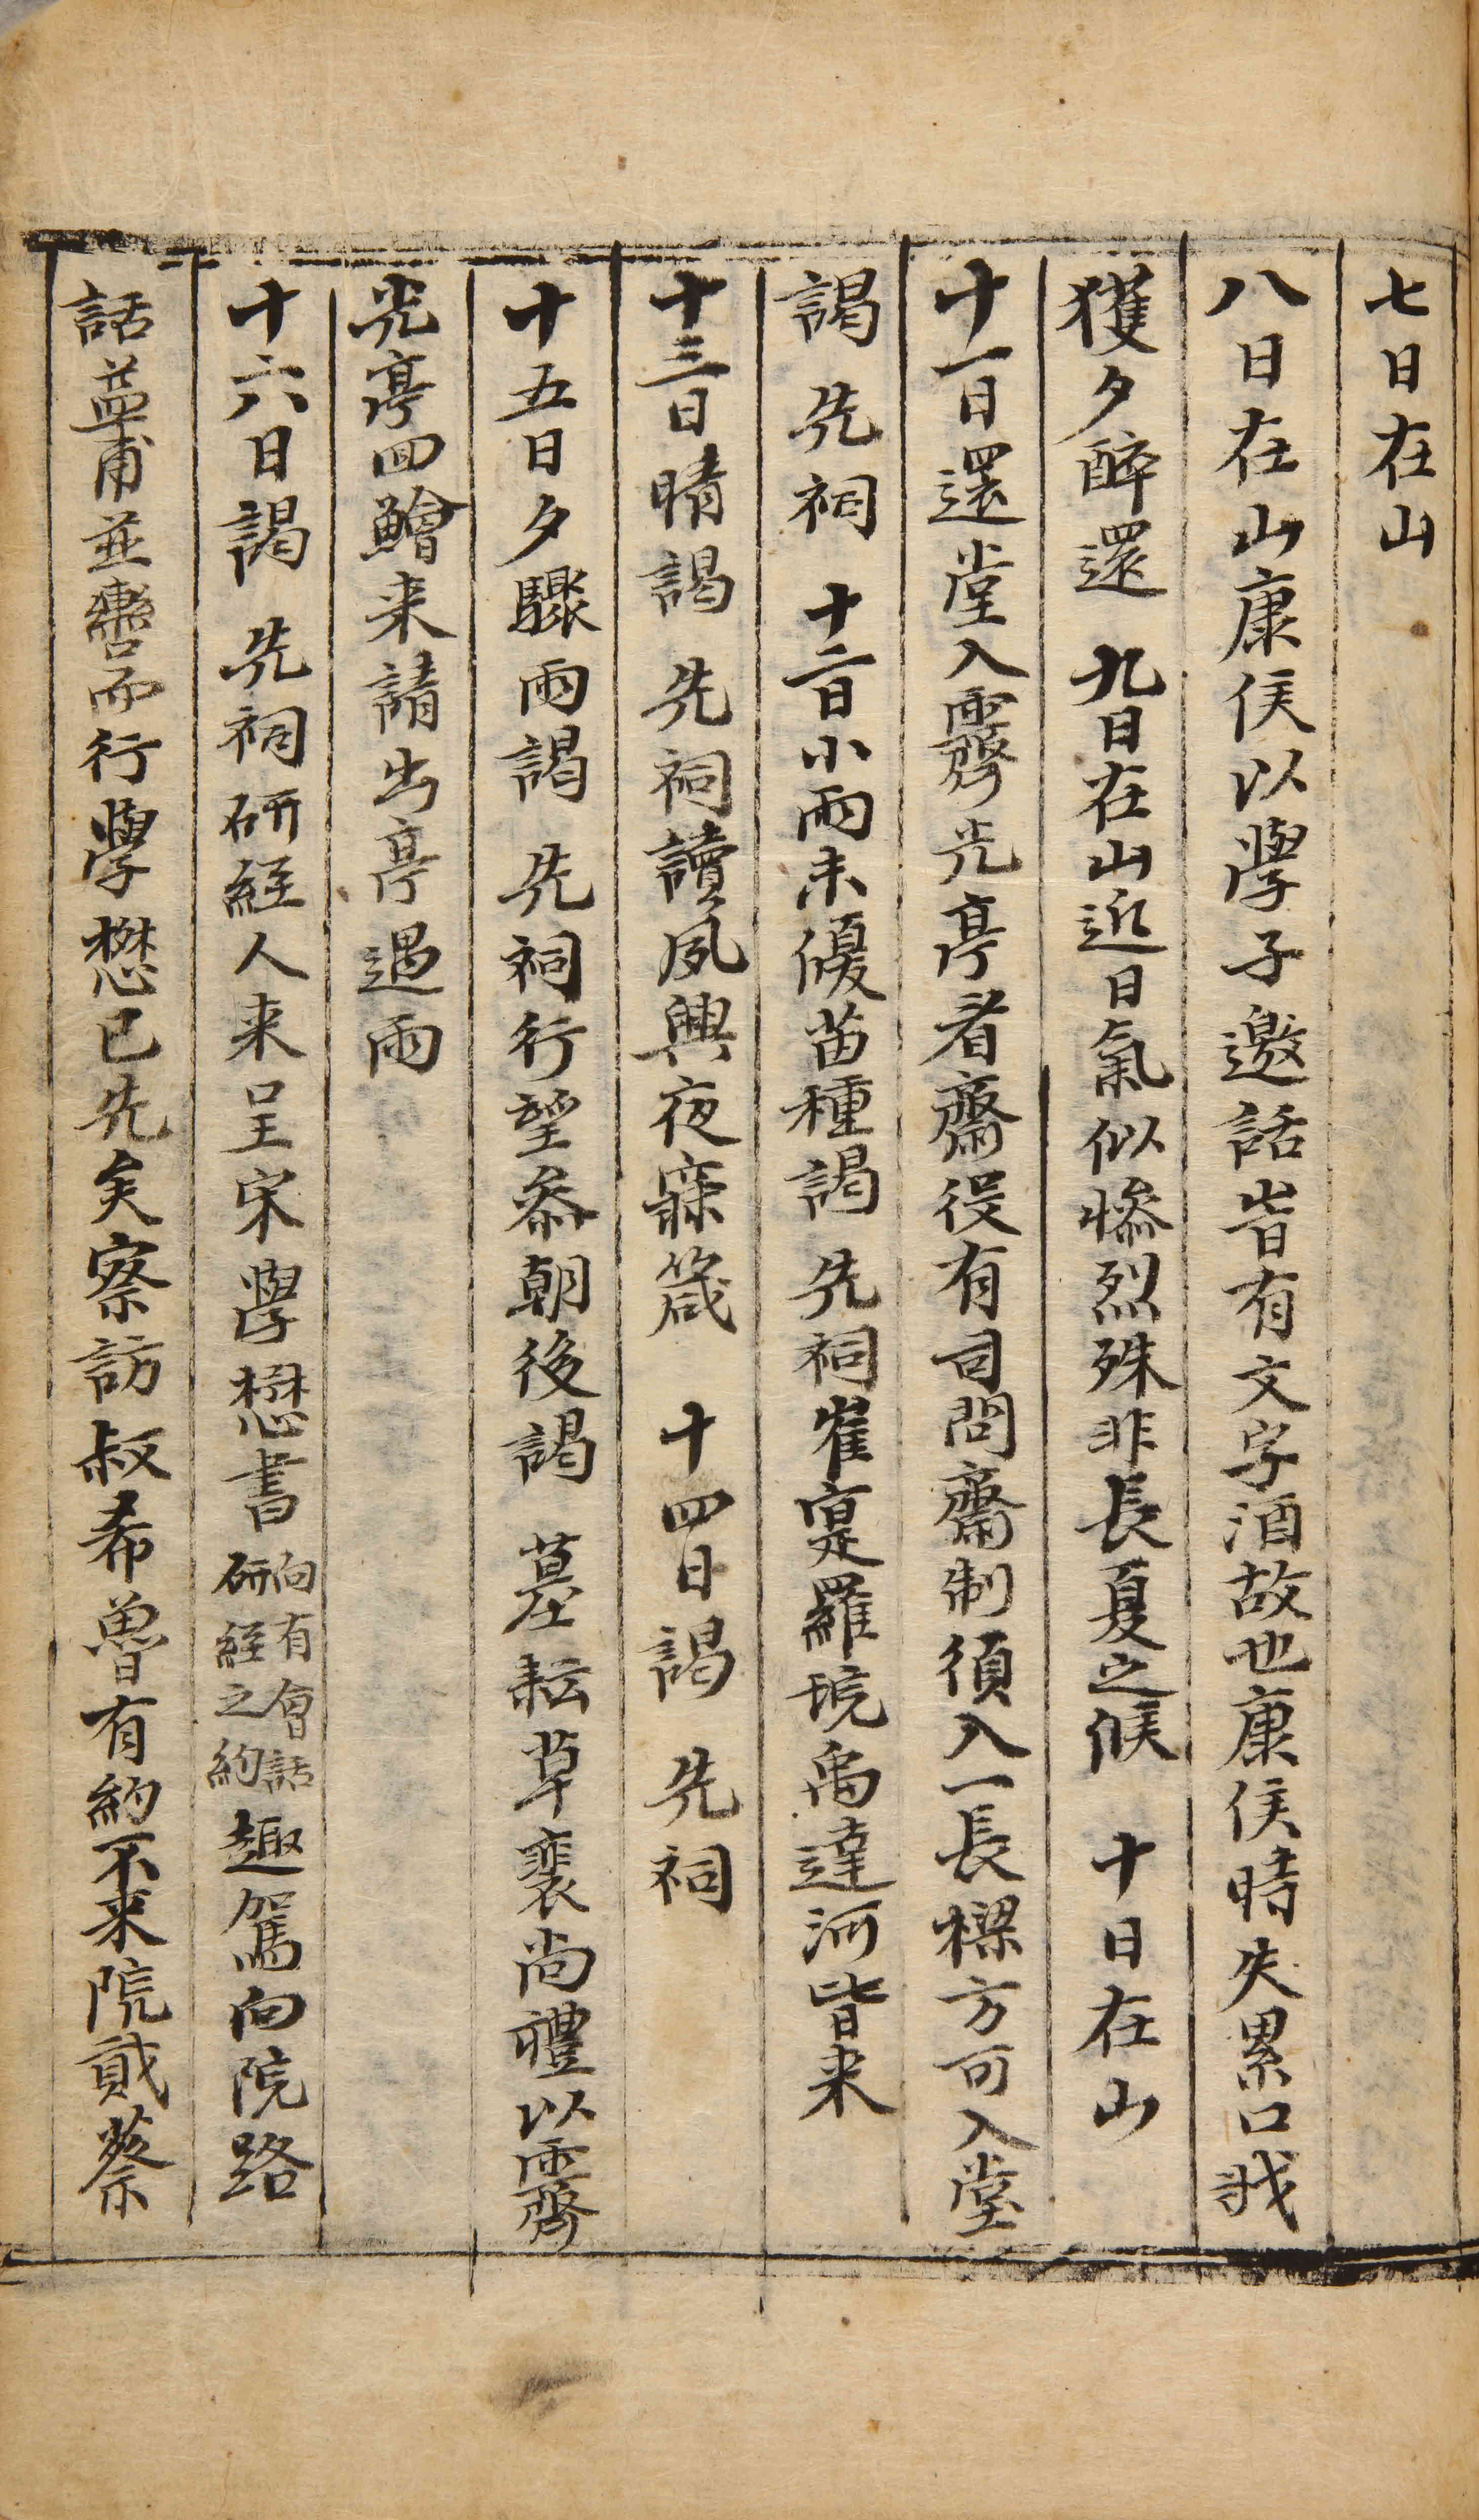 七日在山
八日在山康侯以學子邀話皆有文字酒故也康侯時失累口或
獲夕醉還 九日在山近日氣似慘烈殊非長夏之候 十日在山
十一日還堂入霽光亭看齋役有司問齋制須入一長樑方可入堂
謁 先祠 十二日小雨未優苗種謁 先祠崔寔羅埦禹達河皆来
十三日晴謁 先祠讀夙興夜寐箴 十四日謁 先祠
十五日夕驟雨謁 先祠行望叅朝後謁 墓耘草裵尚禮以霽
光亭回鱠来請出亭遇雨
十六日謁 先祠研経人来呈宋學懋書向有會話研経之約趣駕向院路
話益甫並轡而行學懋已先矣察訪叔希魯有約不来院貳蔡